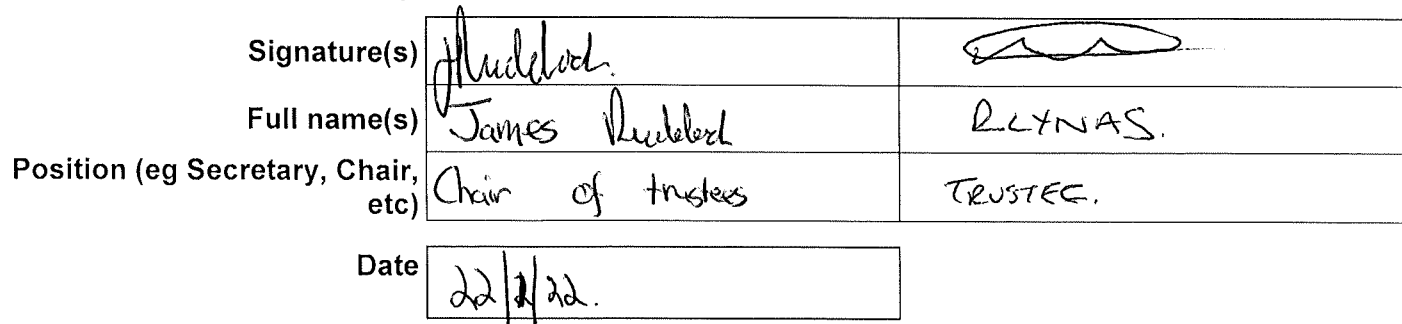 Signature(s)
Full name(s) James Ruddoch RLYNAS.
Position (eg Secretary, Chair,
etc) Chair of trustees TRUSTEE.
Date 22/ /22.